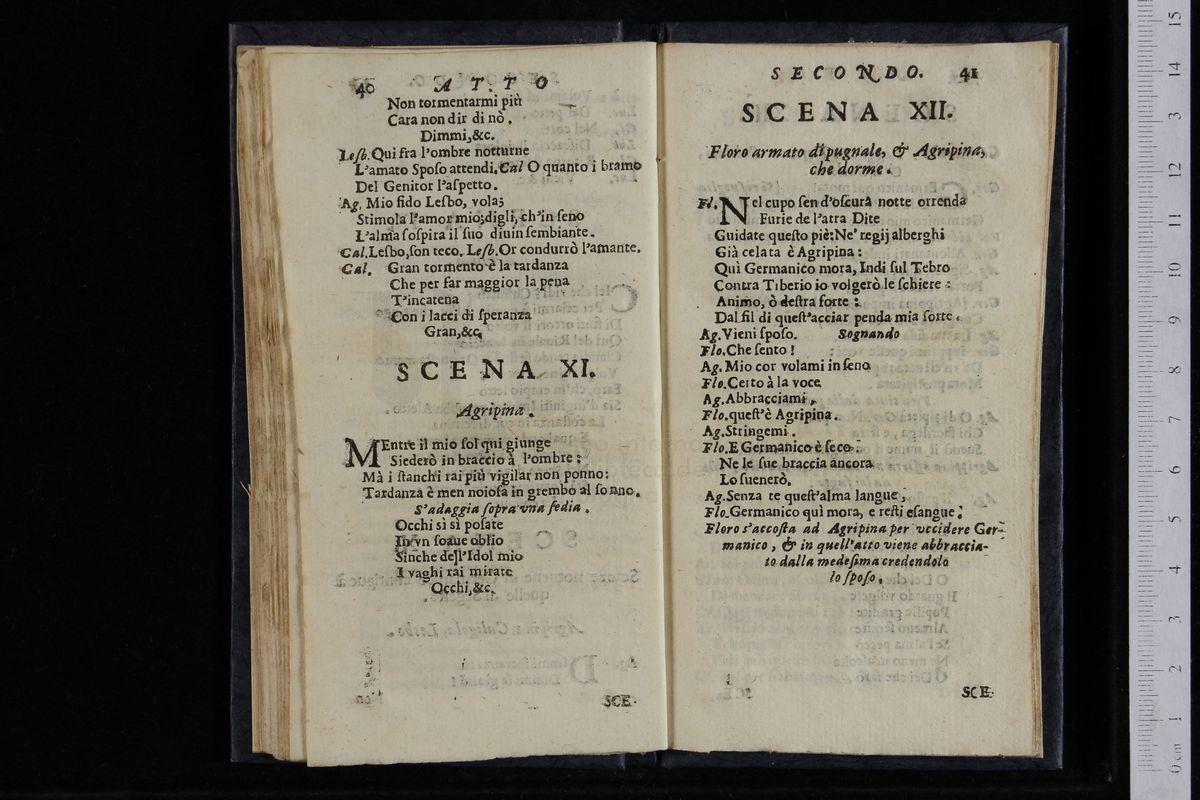 40 ATTO
Non tormentarmi più
Cara non dir di nò.
Dimmi,&c.
Leſb. Qui fra l'ombre notturne
L'amato Spoſo attendi. Cal O quanto i bramo
Del Genitor l'aſpetto.
Ag. Mio fido Leſbo, vola;
Stimola l'amor mio; digli, ch'in ſeno
L'alma ſoſpira il ſuo diuin ſembiante.
Cal. Leſbo, ſon teco. Leſb. Or condurrò l'amante.
Cal. Gran tormento è la tardanza
Che per far maggior la pena
T'incatena
Con i lacci di ſperanza
Gran,&c.
SCENA XI.
Agripina.
MEntre il mio ſol qui giunge
Siederò in braccio à l'ombre:
Mà i ſtanchi rai più vigilar non ponno:
Tardanza è men noioſa in grembo al ſonno.
S'adaggia ſopra vna ſedia.
Occhi sì sì poſate
In vn ſoaue oblio
Sinche dell'Idol mio
I vaghi rai mirate
Occhi,&c.
SCE-
SECONDO. 41
SCENA XII.
Floro armato di pugnale, & Agripina,
che dorme.
Fl. Nel cupo ſen d'oſcura notte orrenda
Furie de l'atra Dite
Guidate queſto piè: Ne' regij alberghi
Già celata è Agripina:
Quì Germanico mora, Indi ſul Tebro
Contra Tiberio io volgerò le ſchiere:
Animo, ò deſtra forte:
Dal fil di queſt'acciar penda mia ſorte.
Ag. Vieni ſpoſo. Sognando
Flo. Che ſento!
Ag. Mio cor volami in ſeno
Flo. Certo à la voce
Ag. Abbracciami,
Flo. queſt'è Agripina.
Ag. Stringemi.
Flo. E Germanico è ſeco:
Ne le ſue braccia ancora
Lo ſuenerò.
Ag. Senza te queſt'alma langue,
Flo. Germanico quì mora, e reſti eſangue.
Floro s'accoſta ad Agripina per vccidere Ger-
manico, & in quell'atto viene abbraccia-
to dalla medeſima credendolo
lo ſpoſo.
SCE-